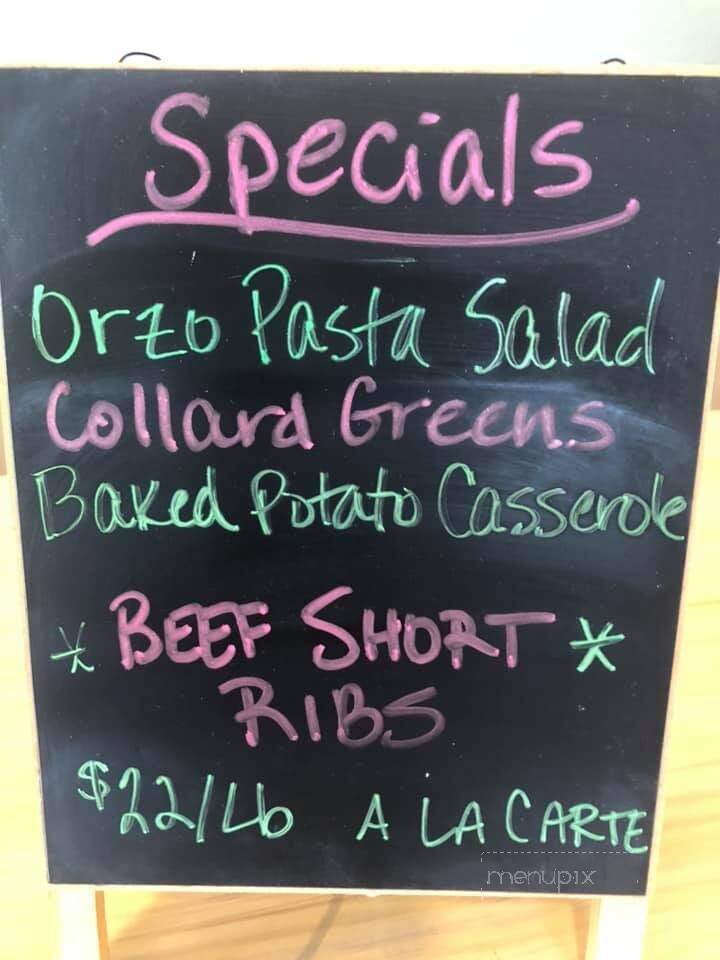 Specials
Orzo Pasta Salad
Collard Greens
Baked Potato Casserole
* BEEF SHORT *
RIBS
$22/Lb A LA CARTE
menupix